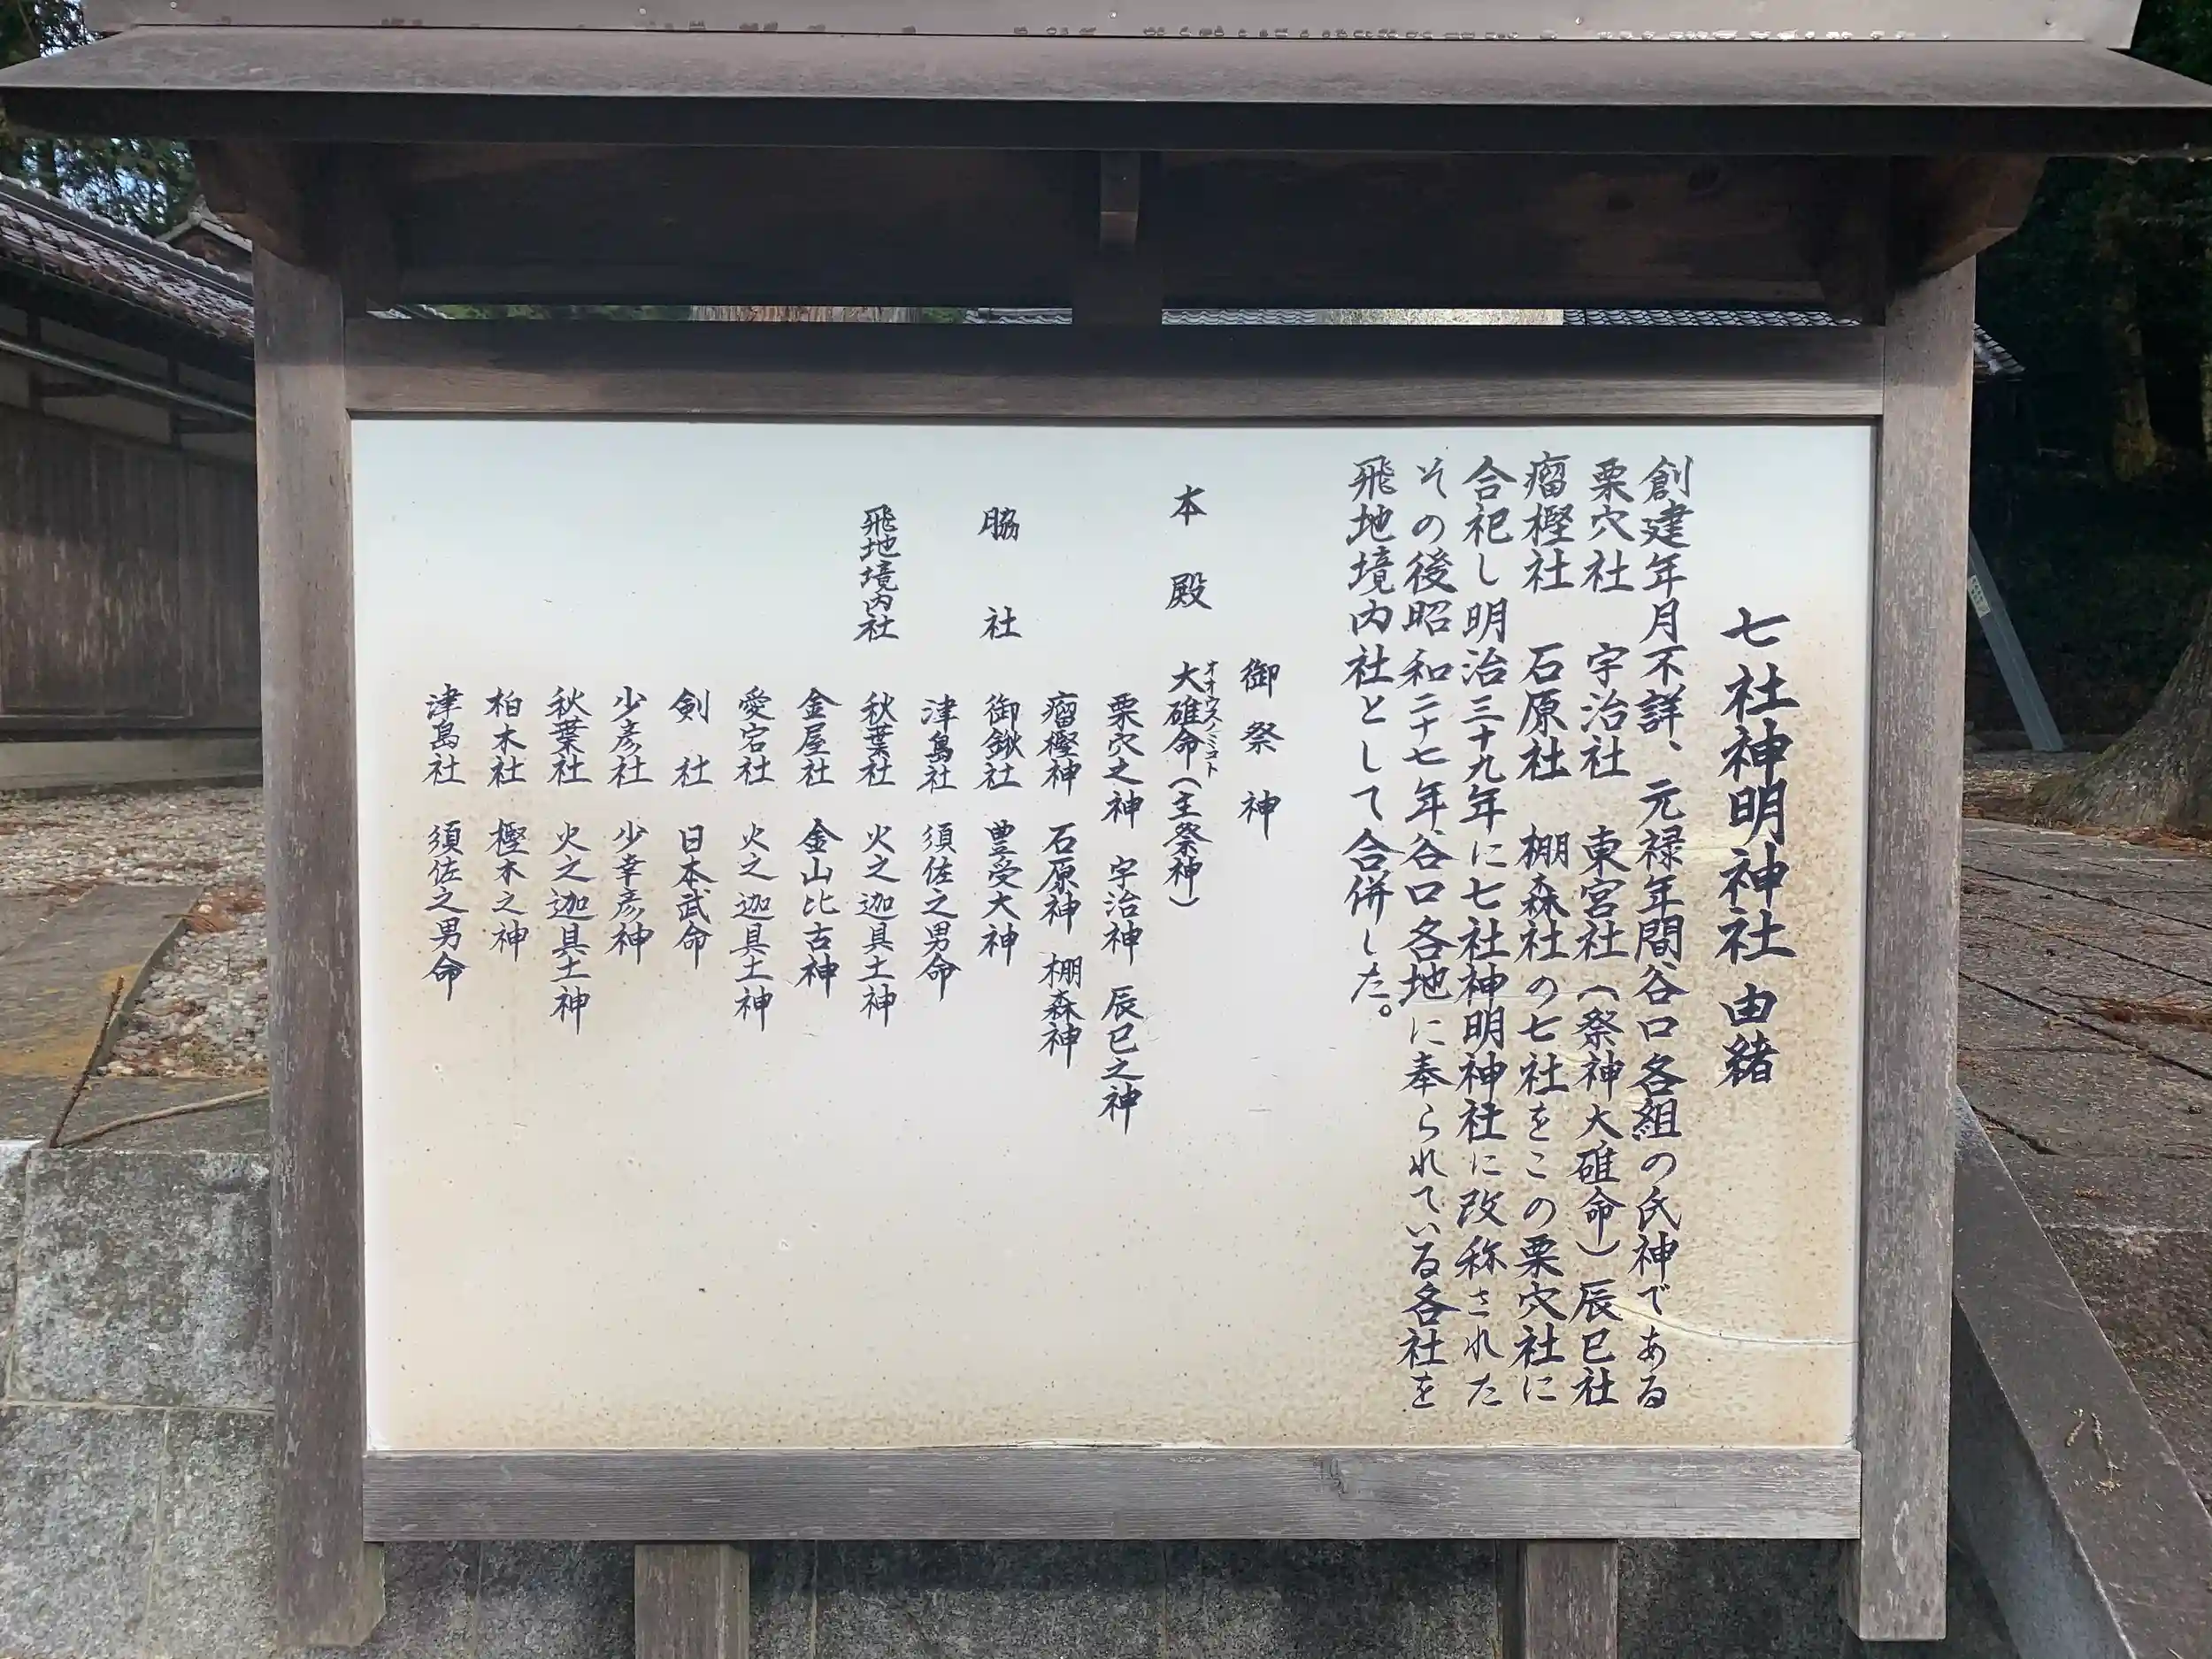 七社神明神社 由緒
創建年月不詳、元禄年間谷口各組の氏神である
栗穴社 宇治社 東宮社(祭神大碓命)辰巳社
瘤樫社 石原社 棚森社の七社をこの栗穴社に
合祀し明治三十九年に七社神明神社に改称された
その後昭和二十七年谷口各地に奉られている各社を
飛地境内社として合併した。
御祭神
本殿 大碓命(主祭神)
オオウスノミコト
栗穴之神 宇治神 辰巳之神
瘤樫神 石原神 棚森神
脇社 御鍬社 豊受大神
津島社 須佐之男命
飛地境内社 秋葉社 火之迦具土神
金屋社 金山比古神
愛宕社 火之迦具土神
剣社 日本武命
少彦社 少幸彦神
秋葉社 火之迦具土神
柏木社 樫木之神
津島社 須佐之男命